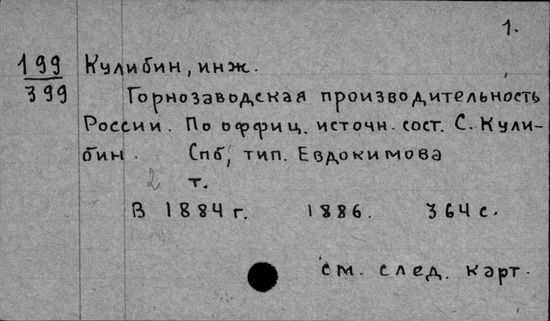 1.
199 Кулибин, инж.
399 Горнозаводская производительность
России. По оффиц. источн. сост. С. Кули-
бин. Спб, тип. Евдокимова
2 т.
В 1884 г. 1886. 364 с.
см. след. карт.